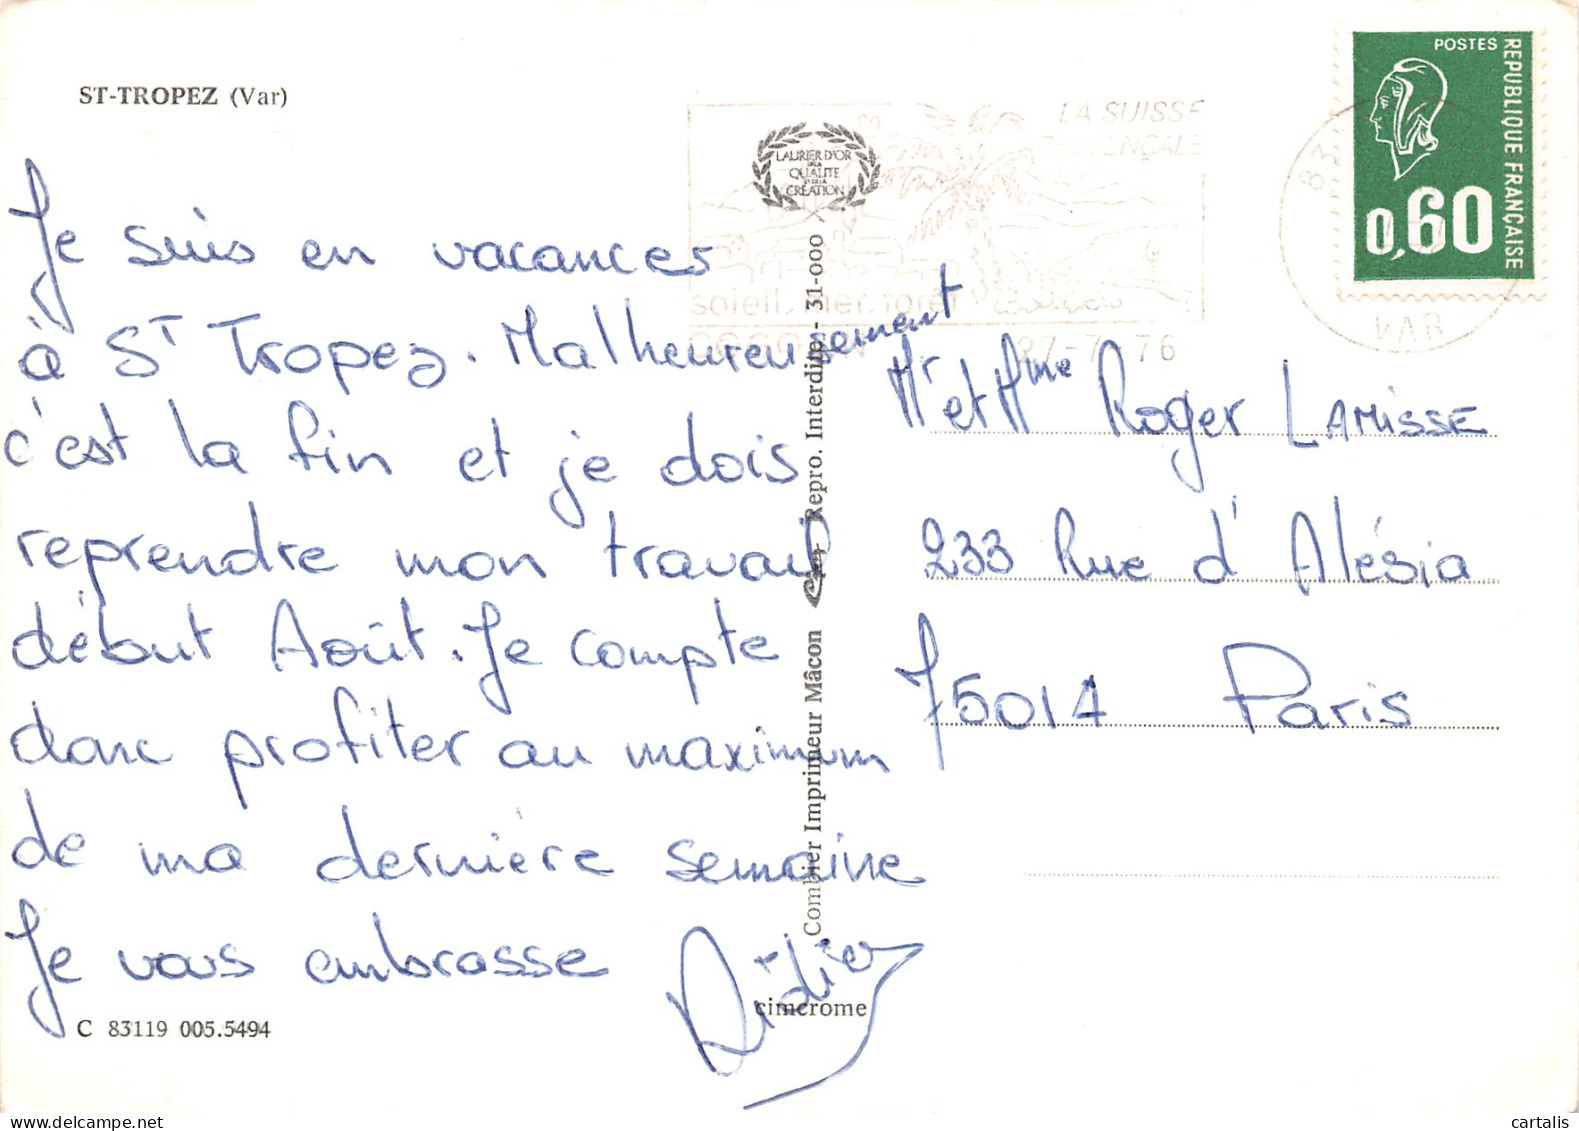 ST-TROPEZ (Var)
Je suis en vacances
à St Tropez. Malheureusement
c'est la fin et je dois
reprendre mon travail
début Août. Je compte
donc profiter au maximum
de ma dernière semaine
Je vous embrasse
Didier
C 83119 005.5494
LAURIER D'OR
DE LA
QUALITE
ET DE LA
CREATION
Combier Imprimeur Mâcon
Repro. Interdite - 31-000
cimcrome
LA SUISSE
soleil, mer, forêt
76
83
VAR
POSTES
REPUBLIQUE FRANÇAISE
0,60
Mr et Mme Roger LAMISSE
233 Rue d'Alésia
75014 Paris
delcampe.net
cartalis